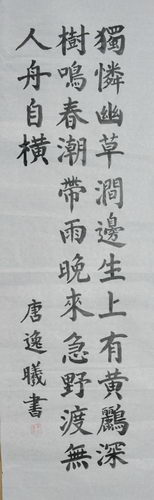 獨憐幽草澗邊生上有黃鸝深
樹鳴春潮帶雨晚來急野渡無
人舟自橫
唐逸曦書